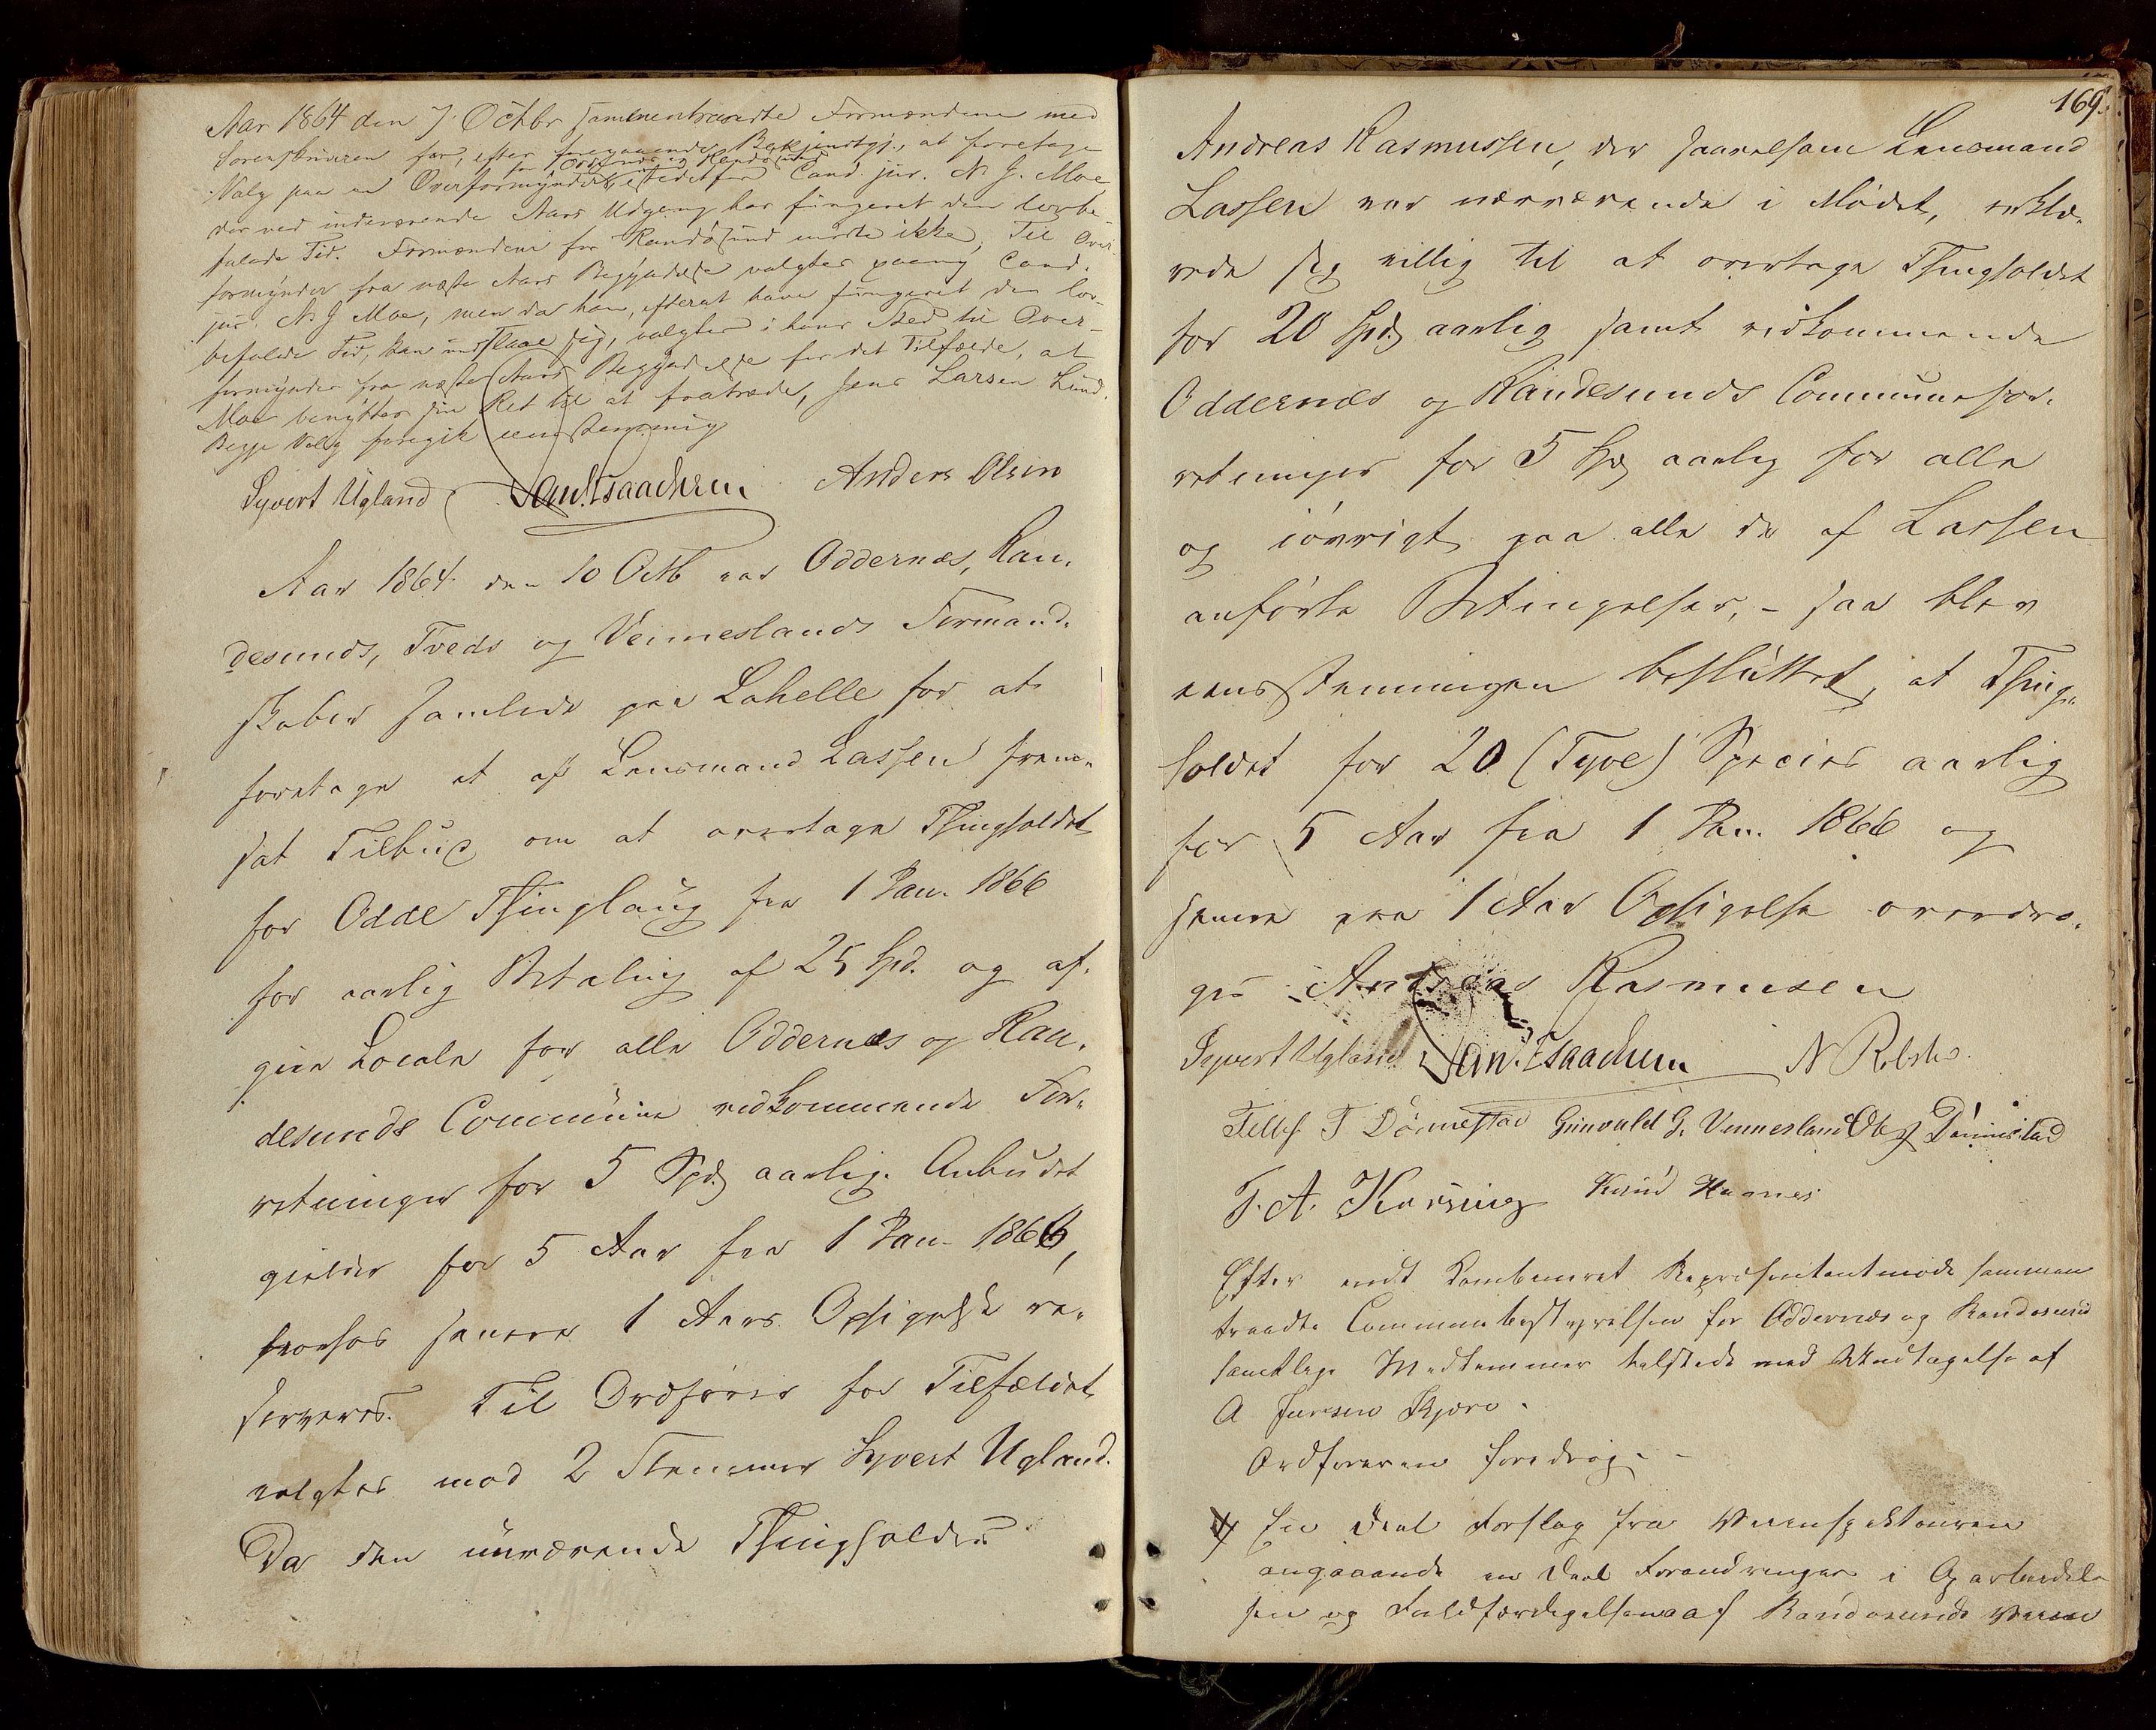 Aar 1864 den 7 Octbr sammentraadte Formændene med
Sorenskriveren for, efter foregaaende Bekjendtgj., at foretage
for Oddernæs og Randøsund
Valg paa en Overformynder istedetfor Cand. jur. N. J. Moe,
der ved indeværende Aars Udgang har fungeret den lovbe-
falede Tid. Formændene for Randøsund mødte ikke, Til Over
formynder fra næste Aars Begyndelse valgtes paany Cand.
jur. N. J Moe, men da han, efterat have fungeret den lov-
befalede Tid, kan undslaae sig, valgtes i hans Sted til Over-
formynder fra næste Aars Begyndelse for det Tilfælde, at
Moe benytter sin Ret til at fratræde, Jens Larsen Lund.
Begge Valg foregik eenstemmig
Syvert Ugland Dan. Isaachsen Anders Olsen
Aar 1864 den 10 Octb var Oddernæs, Ran-
desunds, Tveds og Venneslands Formand-
skaber samlede paa Lahelle for at
foretage et af Lensmand Lassen frem-
sat Tilbud om at overtage Thingholdet
for Odde Thinglaug fra 1 Jan. 1866
for aarlig Betaling af 25 Spd. og af-
give Locale for alle Oddernæs og Ran-
desunds Commune vedkommende For-
retninger for 5 Spd aarlig. Anbudet
gjelder for 5 Aar fra 1 Jan. 1866,
hvorhos senere 1 Aars Opsigelse re-
serveres. Til Ordfører for Tilfældet
valgtes med 2 Stemmer Syvert Ugland.
Da den nuværende Thingholder
169.
Andreas Rasmussen, der saavelsom Lensmand
Lassen var nærværende i Mødet, erklæ-
rede sig villig til at overtage Thingholdet
for 20 Spd aarlig samt vedkommende
Oddernæs og Randesunds Communefor-
retninger for 5 Spd aarlig for alle
og iøvrigt paa alle de af Lassen
anførte Betingelser, - saa blev
eensstemmingen besluttet, at Thing-
holdet for 20 (Tyve) Species aarlig
for 5 Aar fra 1 Jan. 1866 og
senere paa 1 Aar Opsigelse overdra-
ges Andreas Rasmussen
Syvert Ugland Dan. Isaachsen N
Tellef T Dønnestad Gunvald G. Vennesland Ole Dønnestad
T. A. Knud
Efter endt kombineret Repræsentantmøde sammen
traadte Communebestyrelsen for Oddernæs og Randøsund
samtlige Medlemmer tilstede med Undtagelse af
A Jensen Kjære.
Ordføreren foredrog. -
1) En Deel Forslag fra Veiinspekteuren
angaaende en Deel Forandringer i Oparbeidel
sen og Fuldfærdigelsen af Randøsunds Veiene